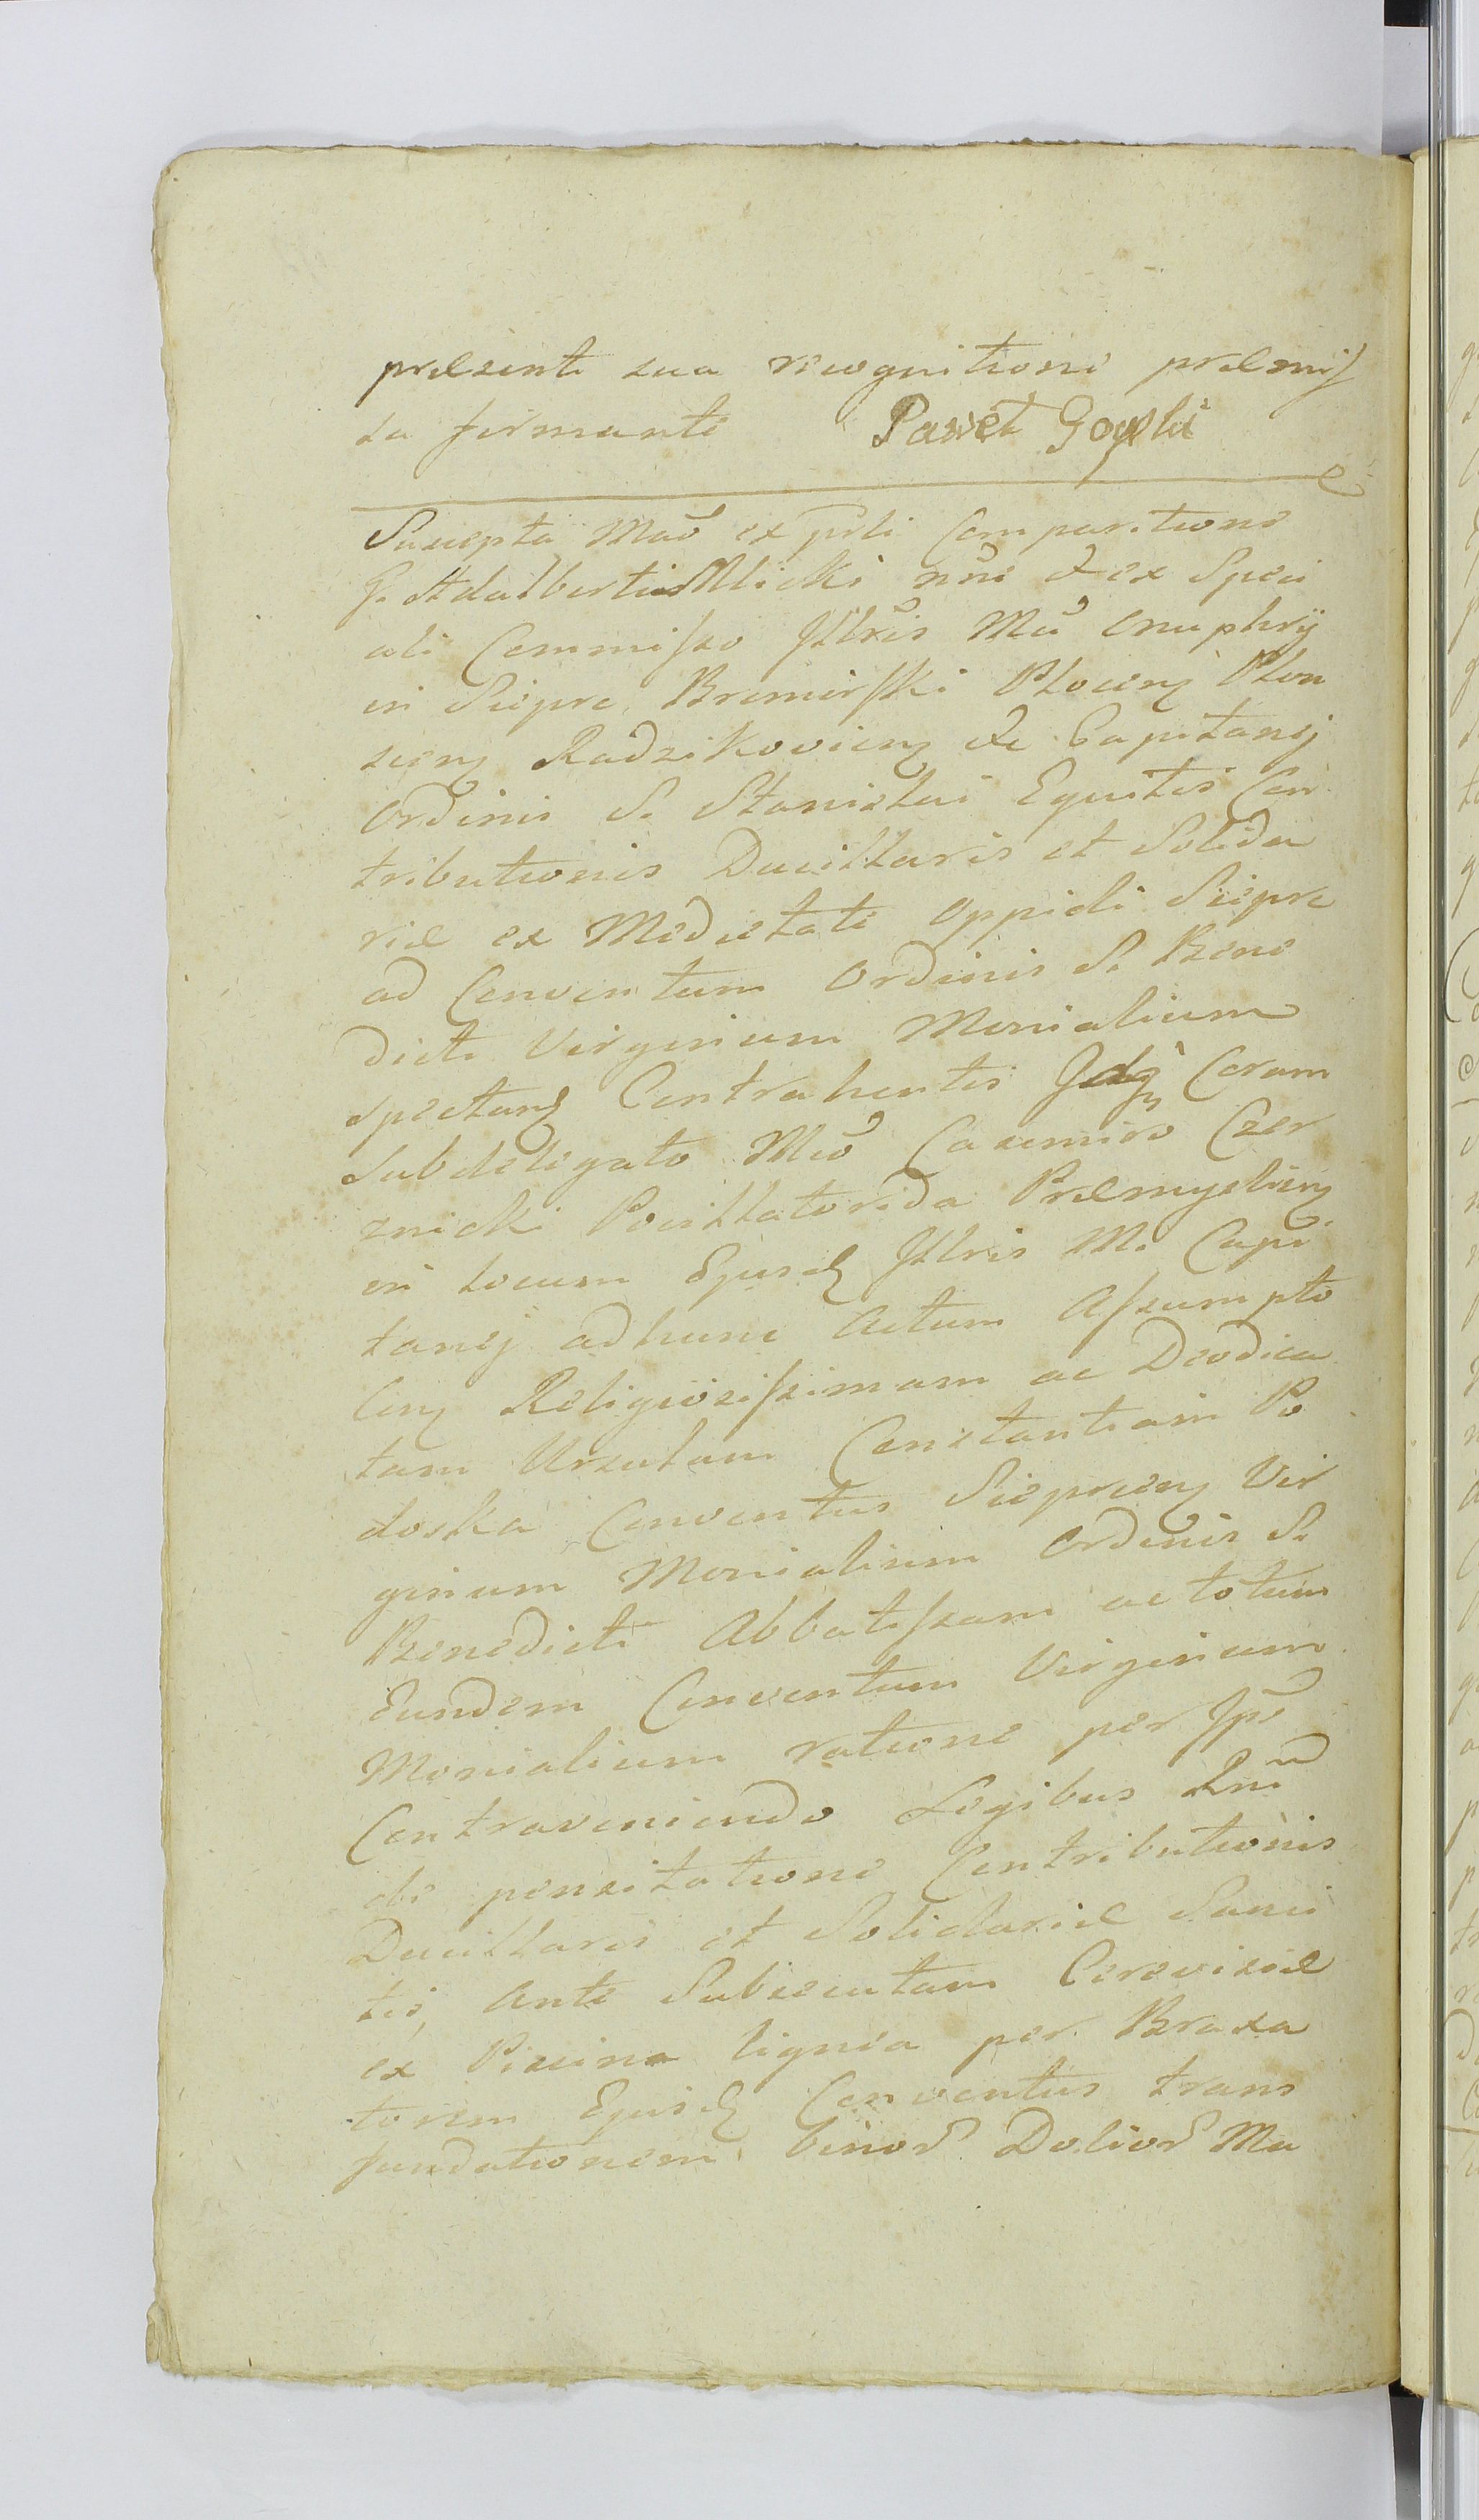 presenti sua recognitione præmiſ
sa firmante Paweł Goyski
Suscepta Mãd ex prli Comparitione
G. Adalberti Mlicki nñe & ex Speci
ali Commiſso Jllris Mñ Onuphrÿ
in Sieprc Bromirſki Płocenſ Płon
scenſ Radzikovienſ &c Capitanej
Ordinis S. Stanislai Equitis Con
tributionis Ducillaris et Solida
riæ ex Medietate Oppidi Sieprc
ad Conventum Ordinis S. Bene
dicti Virginum Monialium
Spectanſ Contrahentis Jdq Coram
Subdelegato Mco Casimiro Czer
znicki Pocillatorida Præmyslienſ
in locum Ejusd Jllris M. Capi
tanej adhunc Actum Aſsumpto
Conſ Religiosiſsimam ac Deodica
tam Ursulam Constantiam Po
doska Conventus Sieprcenſ Vir
ginum Monialium Ordinis S.
Benedicti Abbatiſsam ac totum
Eundem Conventum Virginum
Monialium ratione per Jps
Contraveniendo Legibus Rni
de pensitatione Contributionis
Ducillaris et Solidariæ Sanci
tis, Ante Subsecutam Cerevisiæ
ex Piscina lignea per Braxa
torem Ejusd Conventus trans
fundationem binor Dolior Mu